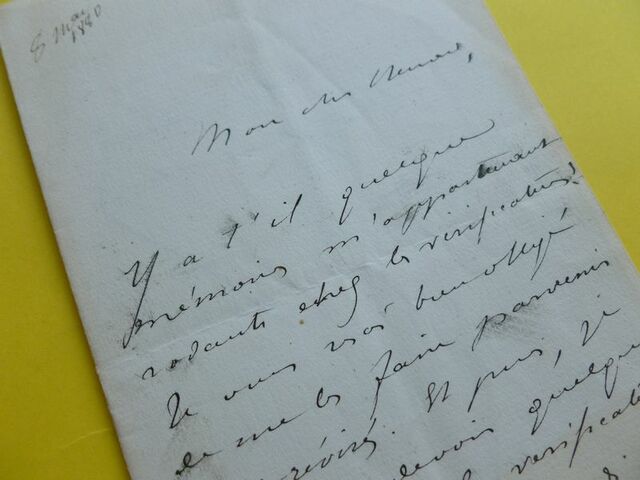 8 Mai
1880
Mon cher
Y a t'il quelque
mémoires m'appartenant
rodants chez les vérificateurs?
Je vous serai bien obligé
de me les faire parvenir
révisés. Et puis, je
devoir quelque
vérificate